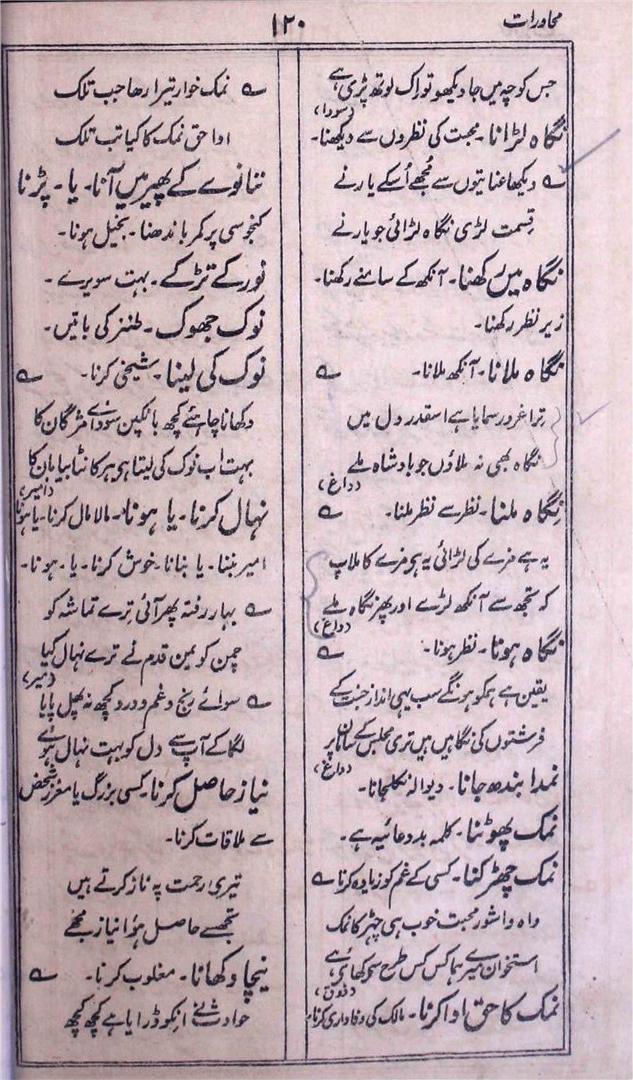 محاورات
۱۲۰
جس کوچہ میں جا دیکھو تو اک لوتھ پڑی ہے
(سودا)
نگاہ لڑانا۔ محبت کی نظروں سے دیکھنا۔
؎ دیکھا عنایتوں سے مجھے اُسکے یار نے
قسمت لڑی نگاہ لڑائی جو یار نے
نگاہ میں رکھنا۔ آنکھ کے سامنے رکھنا۔
زیر نظر رکھنا۔
نگاہ ملانا۔ آنکھ ملانا۔ ؎
ترا غرور سمایا ہے اسقدر دل میں
نگاہ بھی نہ ملاؤں جو بادشاہ ملے
(داغ)
نگاہ ملنا۔ نظر سے نظر ملنا۔ ؎
یہ ہے مزے کی لڑائی یہ ہی مزے کا ملاپ
کہ تجھ سے آنکھ لڑے اور پھر نگاہ ملے
(داغ)
نگاہ ہونا۔ نظر ہونا۔ ؎
یقین ہے ہمکو ہونگے سب یہی انداز جنت کے
فرشتوں کی نگاہیں ہیں تری مجلس کے ساماں پر
(داغ)
نمدا بندھ جانا۔ دیوالہ نکلجانا۔
نمک پھوٹنا۔ کلمہ بد دعائیہ ہے۔
نمک چھڑکنا۔ کسی کے غم کو زیادہ کرنا ؎
واہ وا شور محبت خوب ہی چھڑکا نمک
استخواں میرے ہما کس کس طرح سے کھائے ہے
(ذوق)
نمک کا حق ادا کرنا۔ مالک کی وفاداری کرنا۔
؎ نمک خوار تیرا رہا جب تلک
ادا حق نمک کا کیا تب تلک
ننانوے کے پھیر میں آنا۔ یا۔ پڑنا
کنجوسی پر کمر باندھنا۔ بخیل ہونا۔
نور کے تڑکے۔ بہت سویرے۔
نوک جھوک۔ طنز کی باتیں۔
نوک کی لینا۔ شیخی کرنا۔ ؎
دکھانا چاہئے کچھ بانکپن سودائے مژگاں کا
بہت اب نوک کی لیتا ہے ہر کانٹا بیاباں کا
(امیر)
نہال کرنا۔ یا ہونا۔ مالا مال کرنا۔ یا ہونا
امیر بننا۔ یا بنانا۔ خوش کرنا۔ یا۔ ہونا۔
؎ بہار رفتہ پھر آئی ترے تماشہ کو
چمن کو یمن قدم نے ترے نہال کیا
(میر)
؎ سوائے رنج و غم و درد کچھ نہ پھل پایا
لگا کے آپ سے دل کو بہت نہال ہوئے
نیاز حاصل کرنا۔ کسی بزرگ یا معزز شخص
سے ملاقات کرنا۔
تیری رحمت پہ ناز کرتے ہیں
تجھسے حاصل ہوا نیاز مجھے
نیچا دکھانا۔ مغلوب کرنا۔ ؎
حوادث نے انکو ڈرایا ہے کچھ کچھ